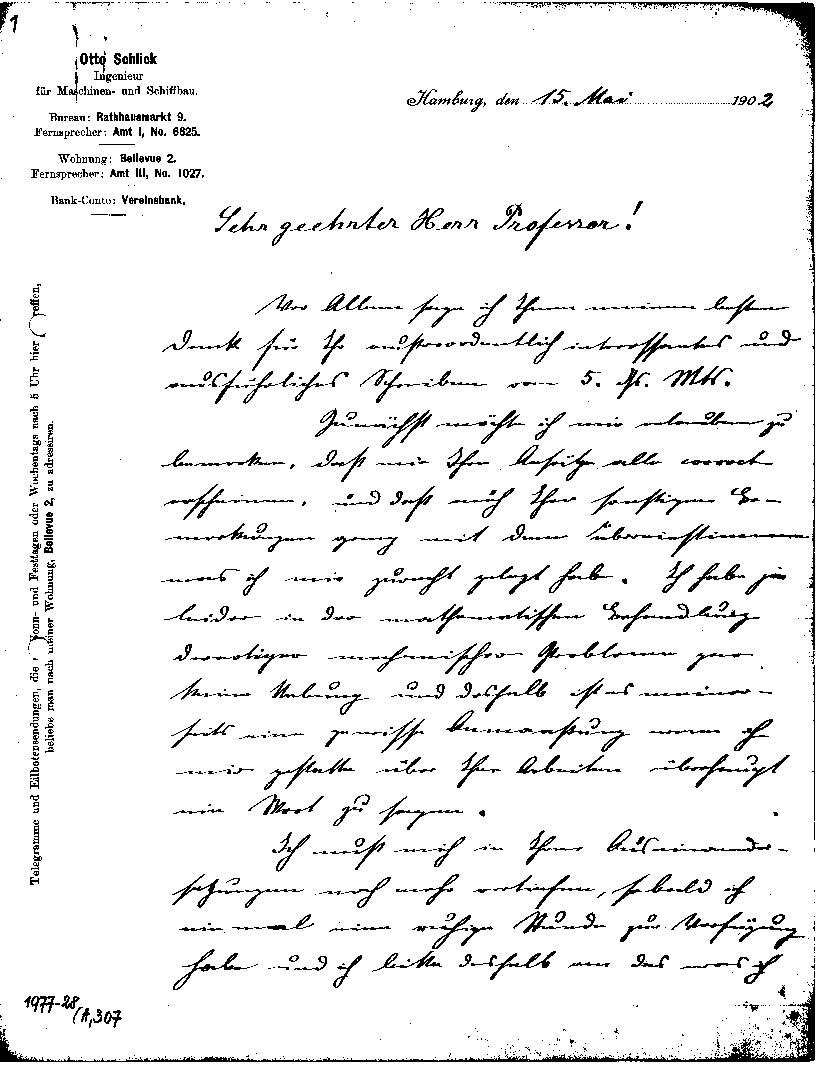 1
Otto Schlick
Ingenieur
für Maschinen- und Schiffbau.
Bureau: Rathhausmarkt 9.
Fernsprecher: Amt I, No. 6625.
Wohnung: Bellevue 2.
Fernsprecher: Amt III, No. 1027.
Bank-Conto: Vereinsbank.
Hamburg, den 15. Mai 1902
Telegramme und Eilbotensendungen, die Sonn- und Festtagen oder Wochentags nach 5 Uhr hier treffen,
beliebe man nach meiner Wohnung, Bellevue 2, zu adressiren.
Sehr geehrter Herr Professor!
Vor Allem sage ich Ihnen meinen besten
Dank für Ihr ausserordentlich interessantes und
ausführliches Schreiben vom 5. ds. Mts.
Zunächst möchte ich mir erlauben zu
bemerken, daß mir Ihre Ansätze alle correct
erscheinen, und daß auch Ihre sonstigen Be-
merkungen ganz mit dem übereinstimmen
was ich mir zurecht gelegt habe. Ich habe ja
leider in der mathematischen Behandlung
derartiger mechanischer Probleme gar
keine Uebung und deshalb ist es meiner-
seits eine gewisse Anmaßung wenn ich
mir gestatte über Ihre Arbeiten überhaupt
ein Wort zu sagen.
Ich muß mich in Ihre Auseinander-
setzungen noch mehr vertiefen, sobald ich
ein mal eine ruhige Stunde zur Verfügung
habe und ich bitte deshalb an das was ich
1977-28/A,307